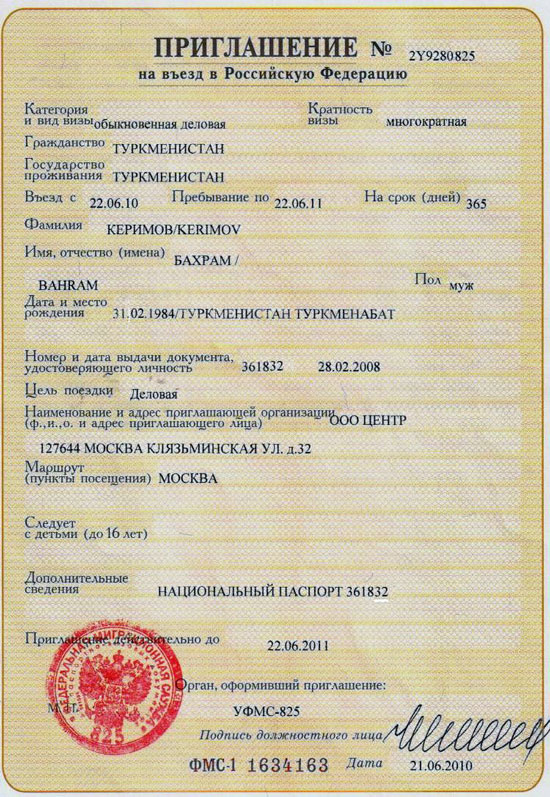 ПРИГЛАШЕНИЕ № 2Y9280825
на въезд в Российскую Федерацию
Категория Кратность
и вид визы обыкновенная деловая визы многократная
Гражданство ТУРКМЕНИСТАН
Государство
проживания ТУРКМЕНИСТАН
Въезд с 22.06.10 Пребывание по 22.06.11 На срок (дней) 365
Фамилия КЕРИМОВ/KERIMOV
Имя, отчество (имена) БАХРАМ /
BAHRAM Пол муж
Дата и место
рождения 31.02.1984/ТУРКМЕНИСТАН ТУРКМЕНАБАТ
Номер и дата выдачи документа,
удостоверяющего личность 361832 28.02.2008
Цель поездки Деловая
Наименование и адрес приглашающей организации
(ф.,и.,о. и адрес приглашающего лица) ООО ЦЕНТР
127644 МОСКВА КЛЯЗЬМИНСКАЯ УЛ. д.32
Маршрут
(пункты посещения) МОСКВА
Следует
с детьми (до 16 лет)
Дополнительные
сведения НАЦИОНАЛЬНЫЙ ПАСПОРТ 361832
Приглашение действительно до 22.06.2011
ФЕДЕРАЛЬНАЯ МИГРАЦИОННАЯ СЛУЖБА
825
М.П.
Орган, оформивший приглашение:
УФМС-825
Подпись должностного лица
ФМС-1 1634163 Дата 21.06.2010